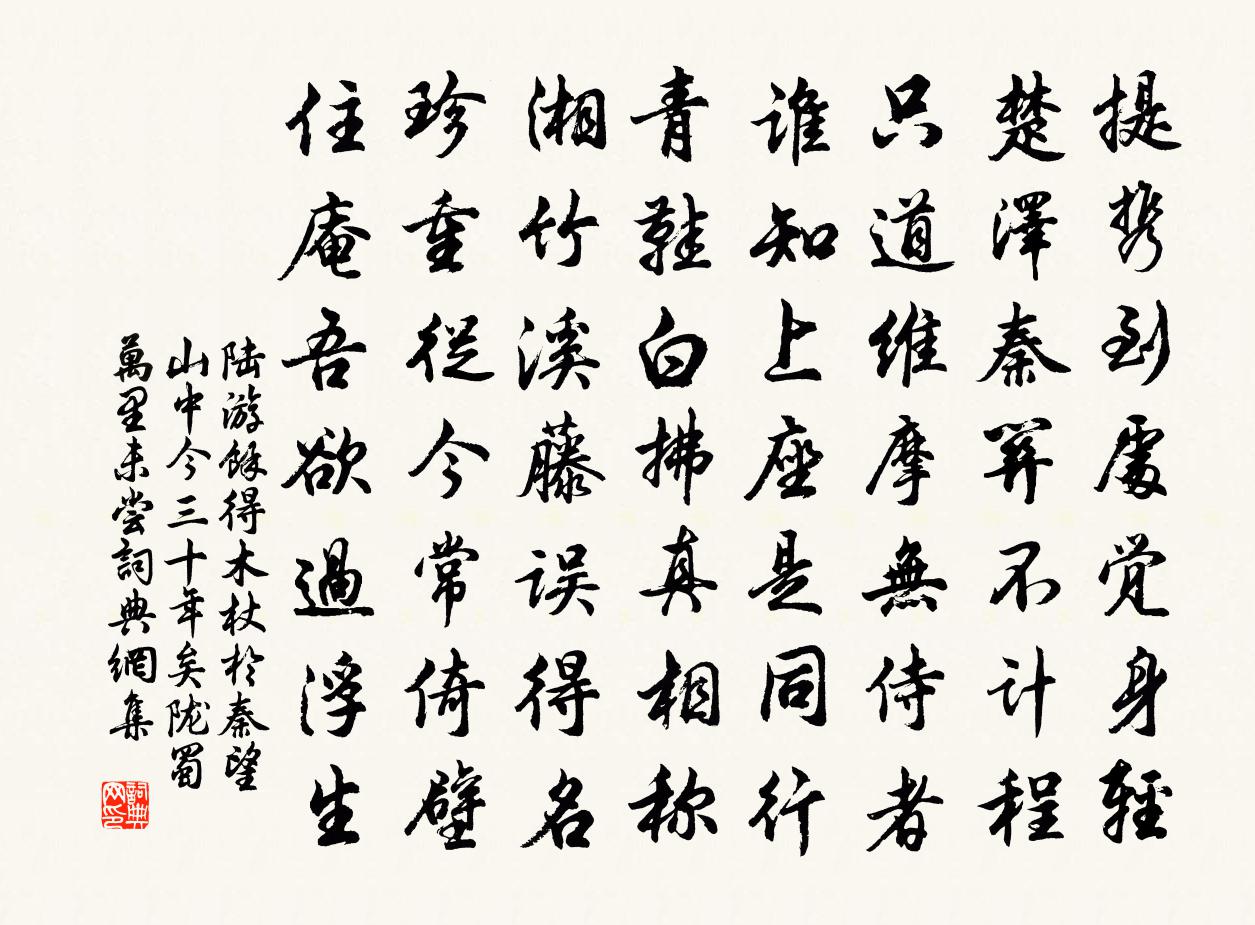 提携到處觉身輕
楚澤秦關不计程
只道维摩無侍者
谁知上座是同行
青鞋白拂真相称
湘竹溪藤误得名
珍重從今常倚壁
住庵吾欲過浮生
陆游馀得木杖於秦望
山中今三十年矣陇蜀
萬里未尝詞典網集
詞典网印